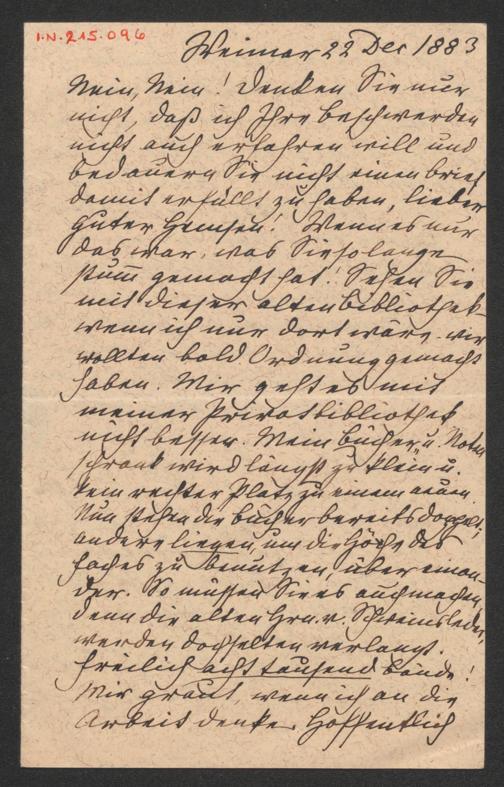 I.N. 215.096
Weimar 22 Dec 1883
Nein, Nein! Denken Sie nur
nicht, daß ich Ihre Beschwerden
nicht auch erfahren will und
bedauern Sie nicht einen Brief
damit erfüllt zu haben, lieber
guter Hemsen! Wenn es nur
das war, was Sie so lange
stumm gemacht hat! Sehen Sie
mit dieser alten Bibliothek –
wenn ich nur dort wäre, wir
wollten bald Ordnung gemacht
haben. Mir geht es mit
meiner Privatbibliothek
nicht besser. Mein Bücher u. Noten
schrank wird längst zu klein u.
kein rechter Platz zu einem neuen.
Nun stehen die Bücher bereits doppelt;
andere liegen, um die Höhe des
Faches zu benutzen, über einan-
der. So müssen Sie es auch machen,
denn die alten Hrn. v. Schweinsleder
werden doch selten verlangt.
Freilich acht tausend Bände!
Mir graut, wenn ich an die
Arbeit denke. Hoffentlich